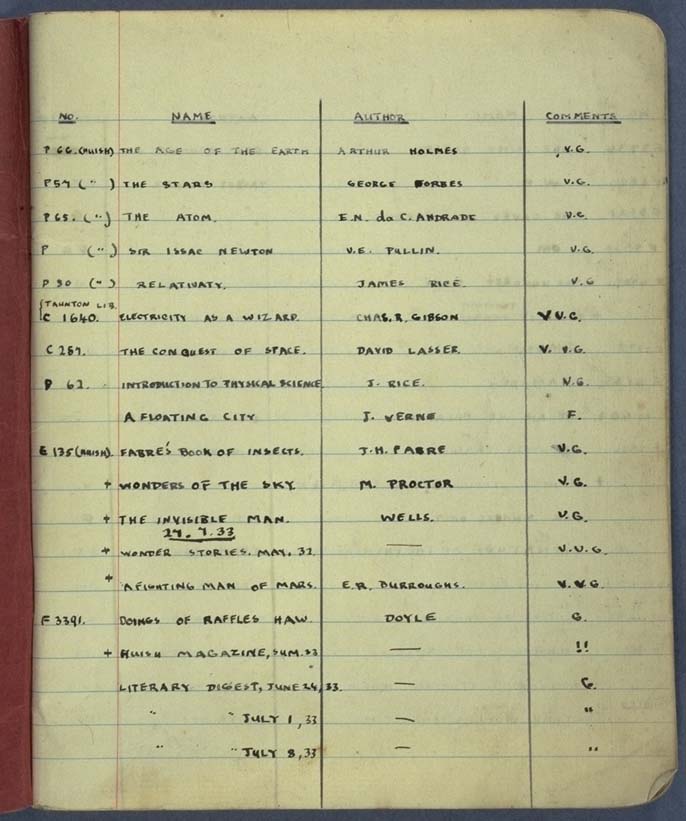 NO. NAME AUTHOR COMMENTS
P 66. (HUISH) THE AGE OF THE EARTH ARTHUR HOLMES V.G.
P 57 ( " ) THE STARS GEORGE FORBES V.G.
P 65. ( " ) THE ATOM. E.N. da C. ANDRADE V.G.
P ( " ) SIR ISSAC NEWTON V.E. PULLIN. V.G.
P 30 ( " ) RELATIVATY. JAMES RICE. V.G
{TAUNTON LIB.
C 1640. ELECTRICITY AS A WIZARD. CHAS. R. GIBSON V V.G.
C 257. THE CONQUEST OF SPACE. DAVID LASSER. V. V.G.
P 62. INTRODUCTION TO PHYSICAL SCIENCE. J. RICE. V.G.
A FLOATING CITY J. VERNE F.
E 135 (HUISH). FABRE'S BOOK OF INSECTS. J.H. FABRE V.G.
+ WONDERS OF THE SKY. M. PROCTOR V.G.
+ THE INVISIBLE MAN. WELLS. V.G.
27. 7. 33
+ WONDER STORIES. MAY. 32. — V.V.G.
+ A FIGHTING MAN OF MARS. E.R. BURROUGHS. V.V.G
F 3391. DOINGS OF RAFFLES HAW. DOYLE G.
+ HUISH MAGAZINE, SUM. 33 — !!
LITERARY DIGEST, JUNE 24, 33. — G.
" " JULY 1, 33 — "
" " JULY 8, 33 — "